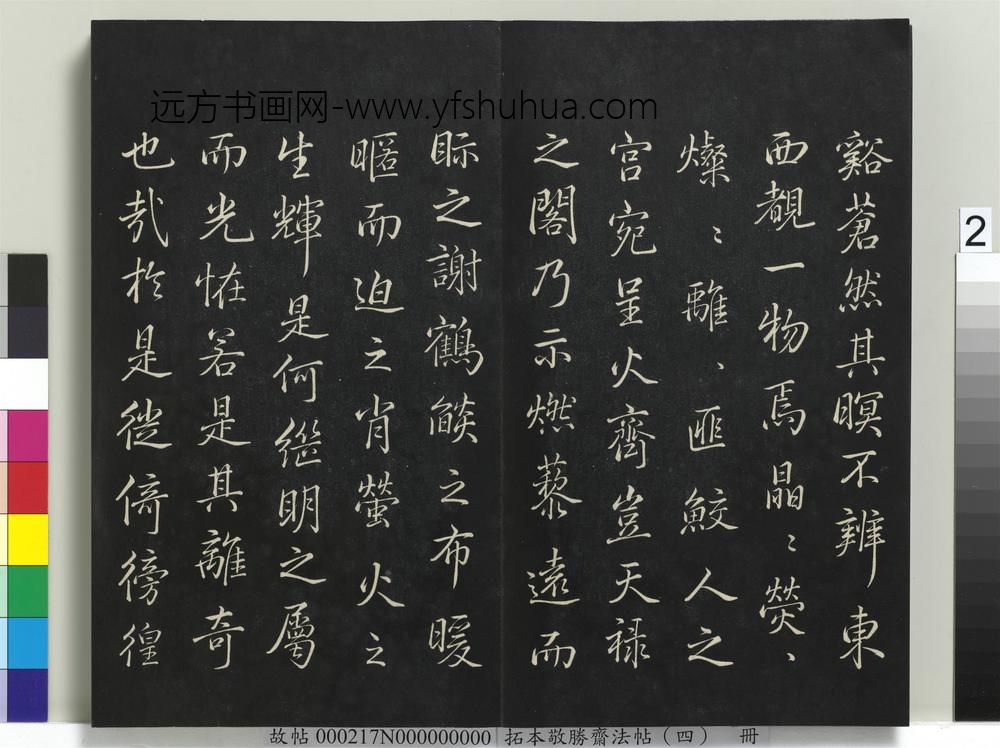 远方书画网-www.yfshuhua.com
谿蒼然其暝不辨東
西覩一物焉晶〻熒〻
燦〻離〻匪鮫人之
宮宛呈火齊豈天禄
之閣乃示燃藜遠而
眎之謝鶴燄之布暖
暱而迫之肖螢火之
生輝是何繼明之屬
而光怪若是其離奇
也哉於是徙倚徬徨
2
故帖 000217N000000000 拓本敬勝齋法帖（四） 冊